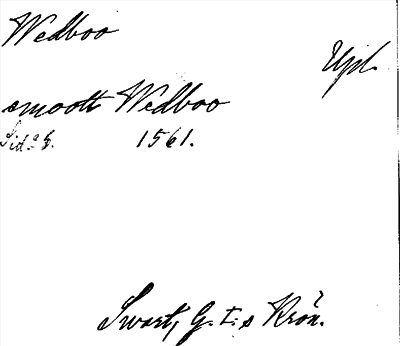 Wedboo
Upl.
smoott Wedboo
Sid. 5. 1561.
Swart, G. I:s Krön.